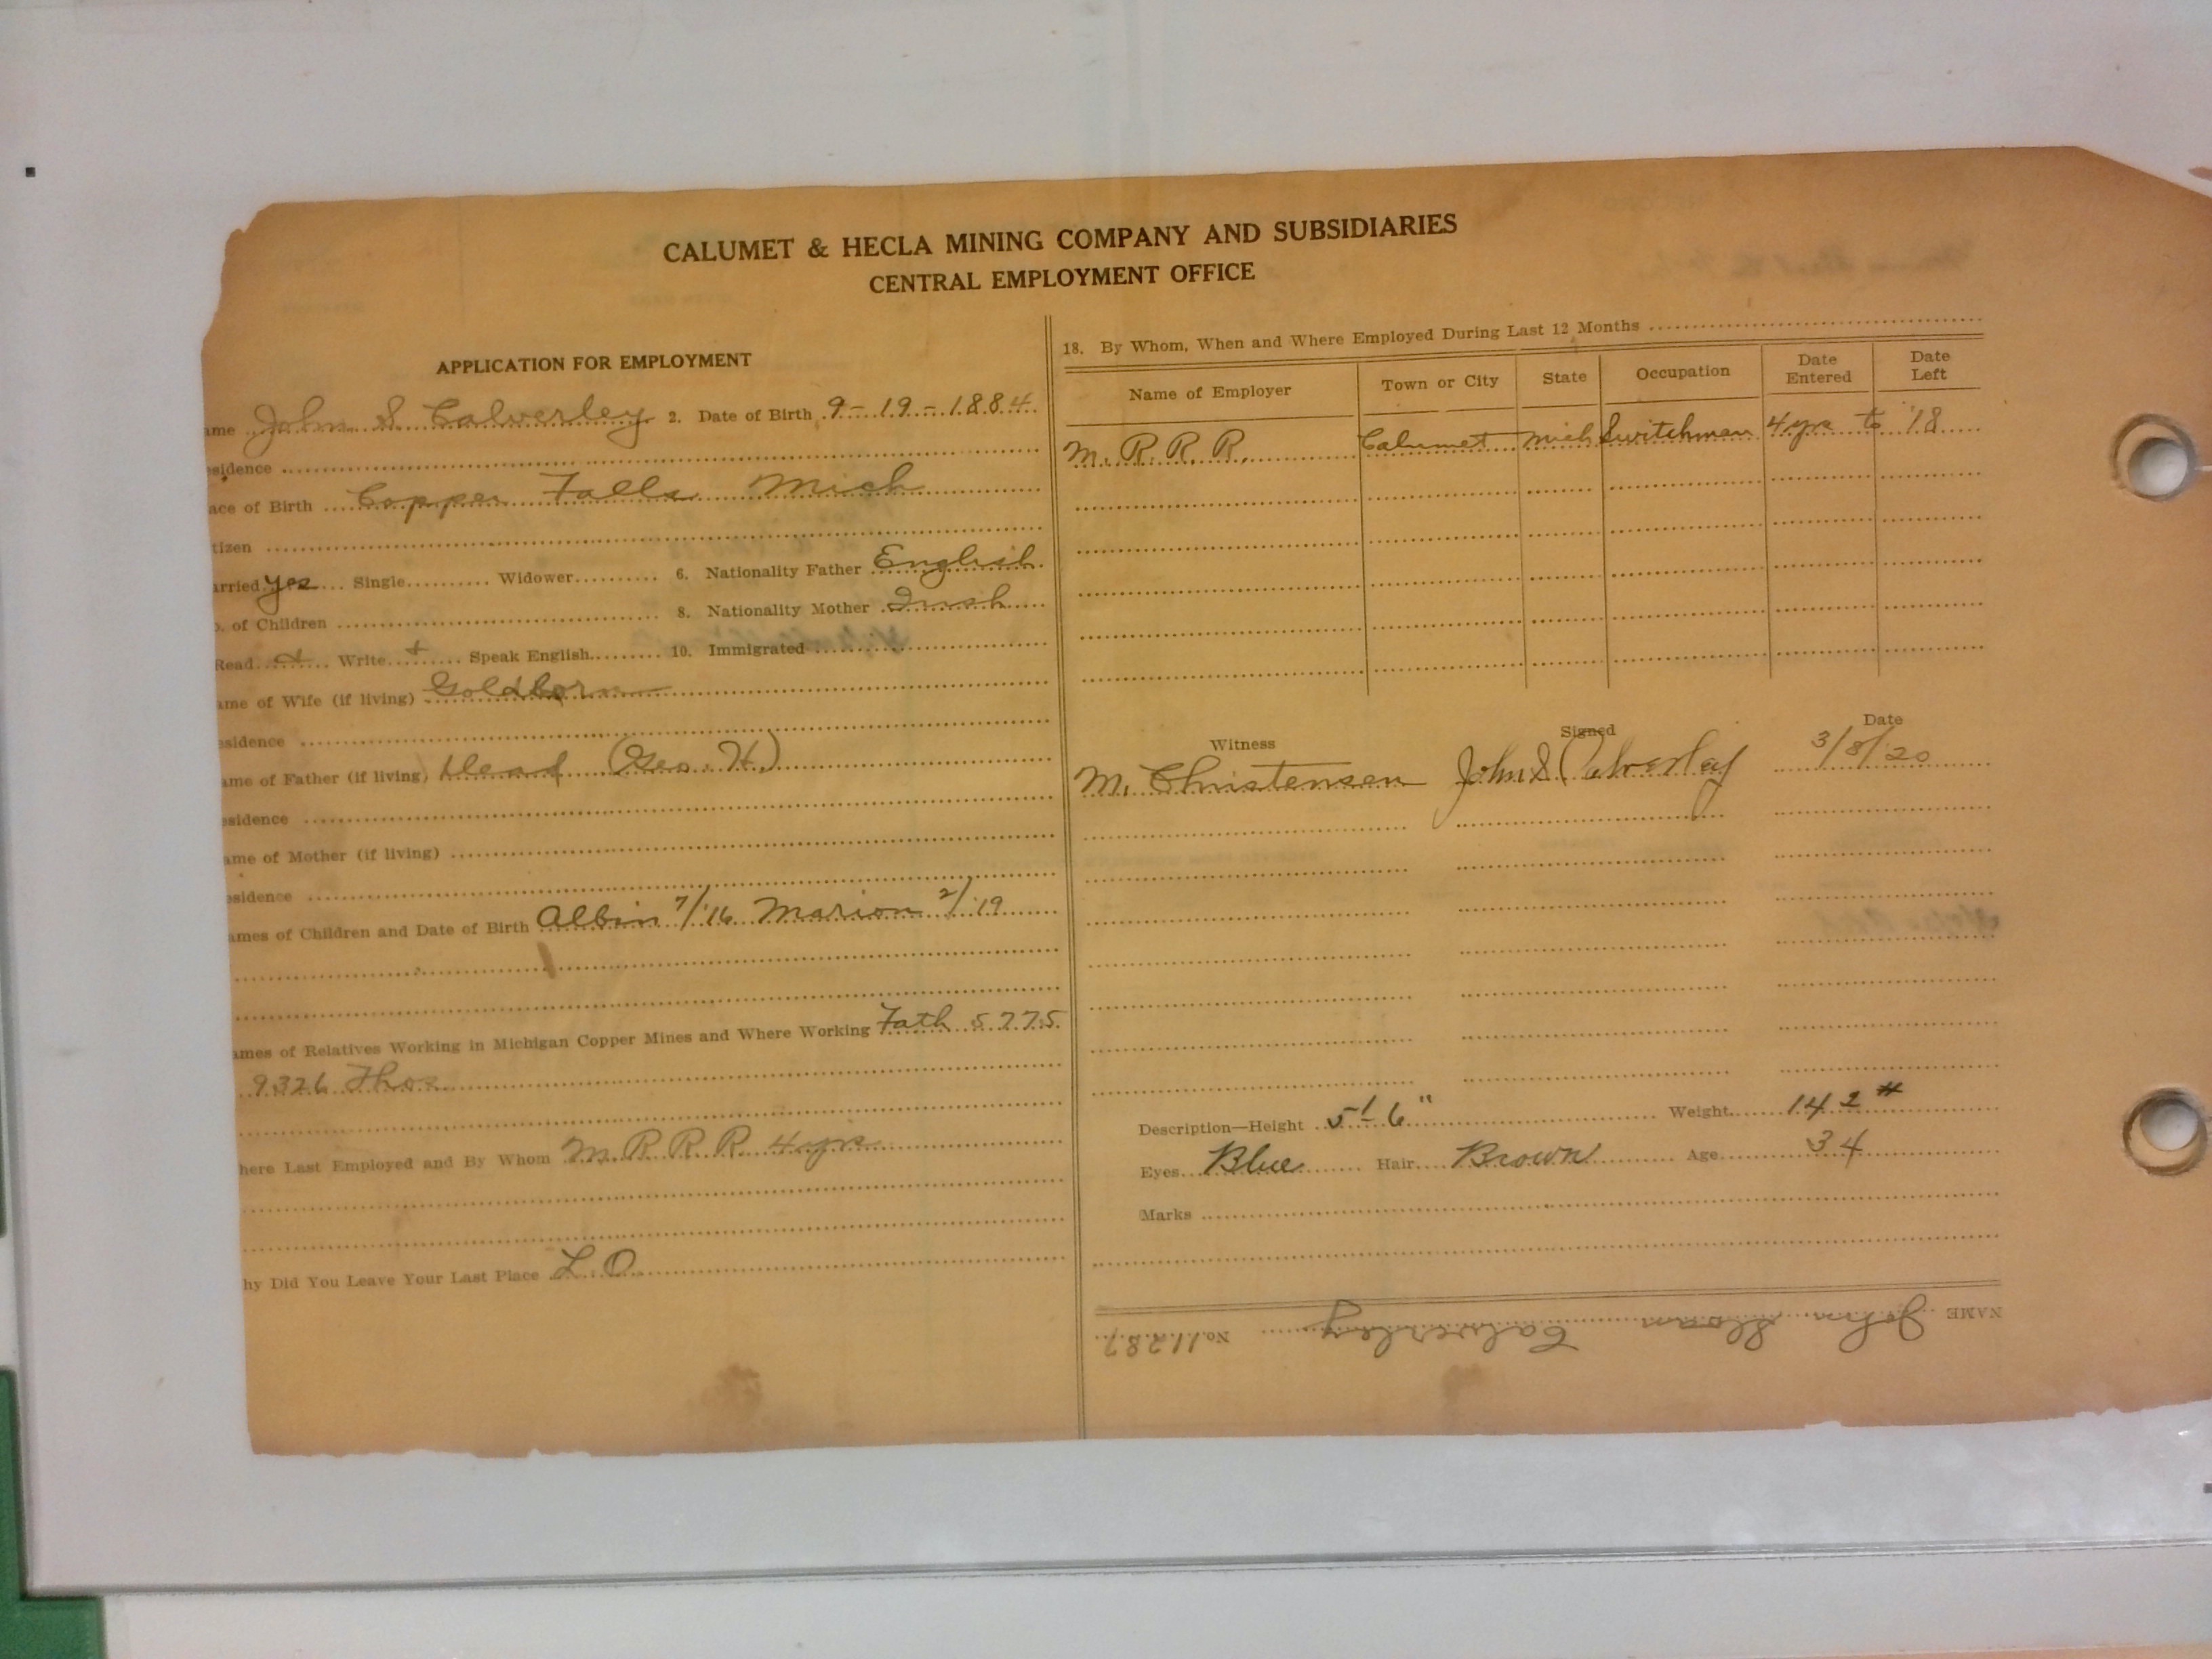 CALUMET & HECLA MINING COMPANY AND SUBSIDIARIES
CENTRAL EMPLOYMENT OFFICE
APPLICATION FOR EMPLOYMENT
ame John S Calverley 2. Date of Birth 9-19-1884
esidence
ace of Birth Copper Falls Mich
tizen
arried yes Single Widower 6. Nationality Father English
o. of Children 8. Nationality Mother Irish
Read + Write + Speak English 10. Immigrated
ame of Wife (if living)
esidence
ame of Father (if living) Dead (Geo. H.)
esidence
ame of Mother (if living)
esidence
ames of Children and Date of Birth Albin 7/16 Marion 2/19
ames of Relatives Working in Michigan Copper Mines and Where Working Fath 5775
9326 Thos
here Last Employed and By Whom M. R R R 4 yrs
hy Did You Leave Your Last Place L.O
18. By Whom, When and Where Employed During Last 12 Months
Name of Employer Town or City State Occupation Date Entered Date Left
M. R. R. R. Calumet Mich Switchman 4 yrs to '18
Witness Signed Date
M. Christensen John S Calverley 3/8/20
Description—Height 5' 6" Weight 142 #
Eyes Blue Hair Brown Age 34
Marks
NAME John Sloan Calverley No. 11287